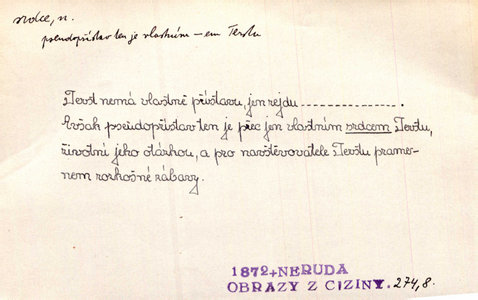 srdce, n.
pseudopřístav ten je vlastním –em Terstu
Terst nemá vlastně přístavu, jen rejdu ...................
Však pseudopřístav ten je přec jen vlastním srdcem Terstu,
životní jeho otázkou, a pro navštěvovatele Terstu prame-
nem rozkošné zábavy.
1872+NERUDA
OBRAZY Z CIZINY. 274,8.